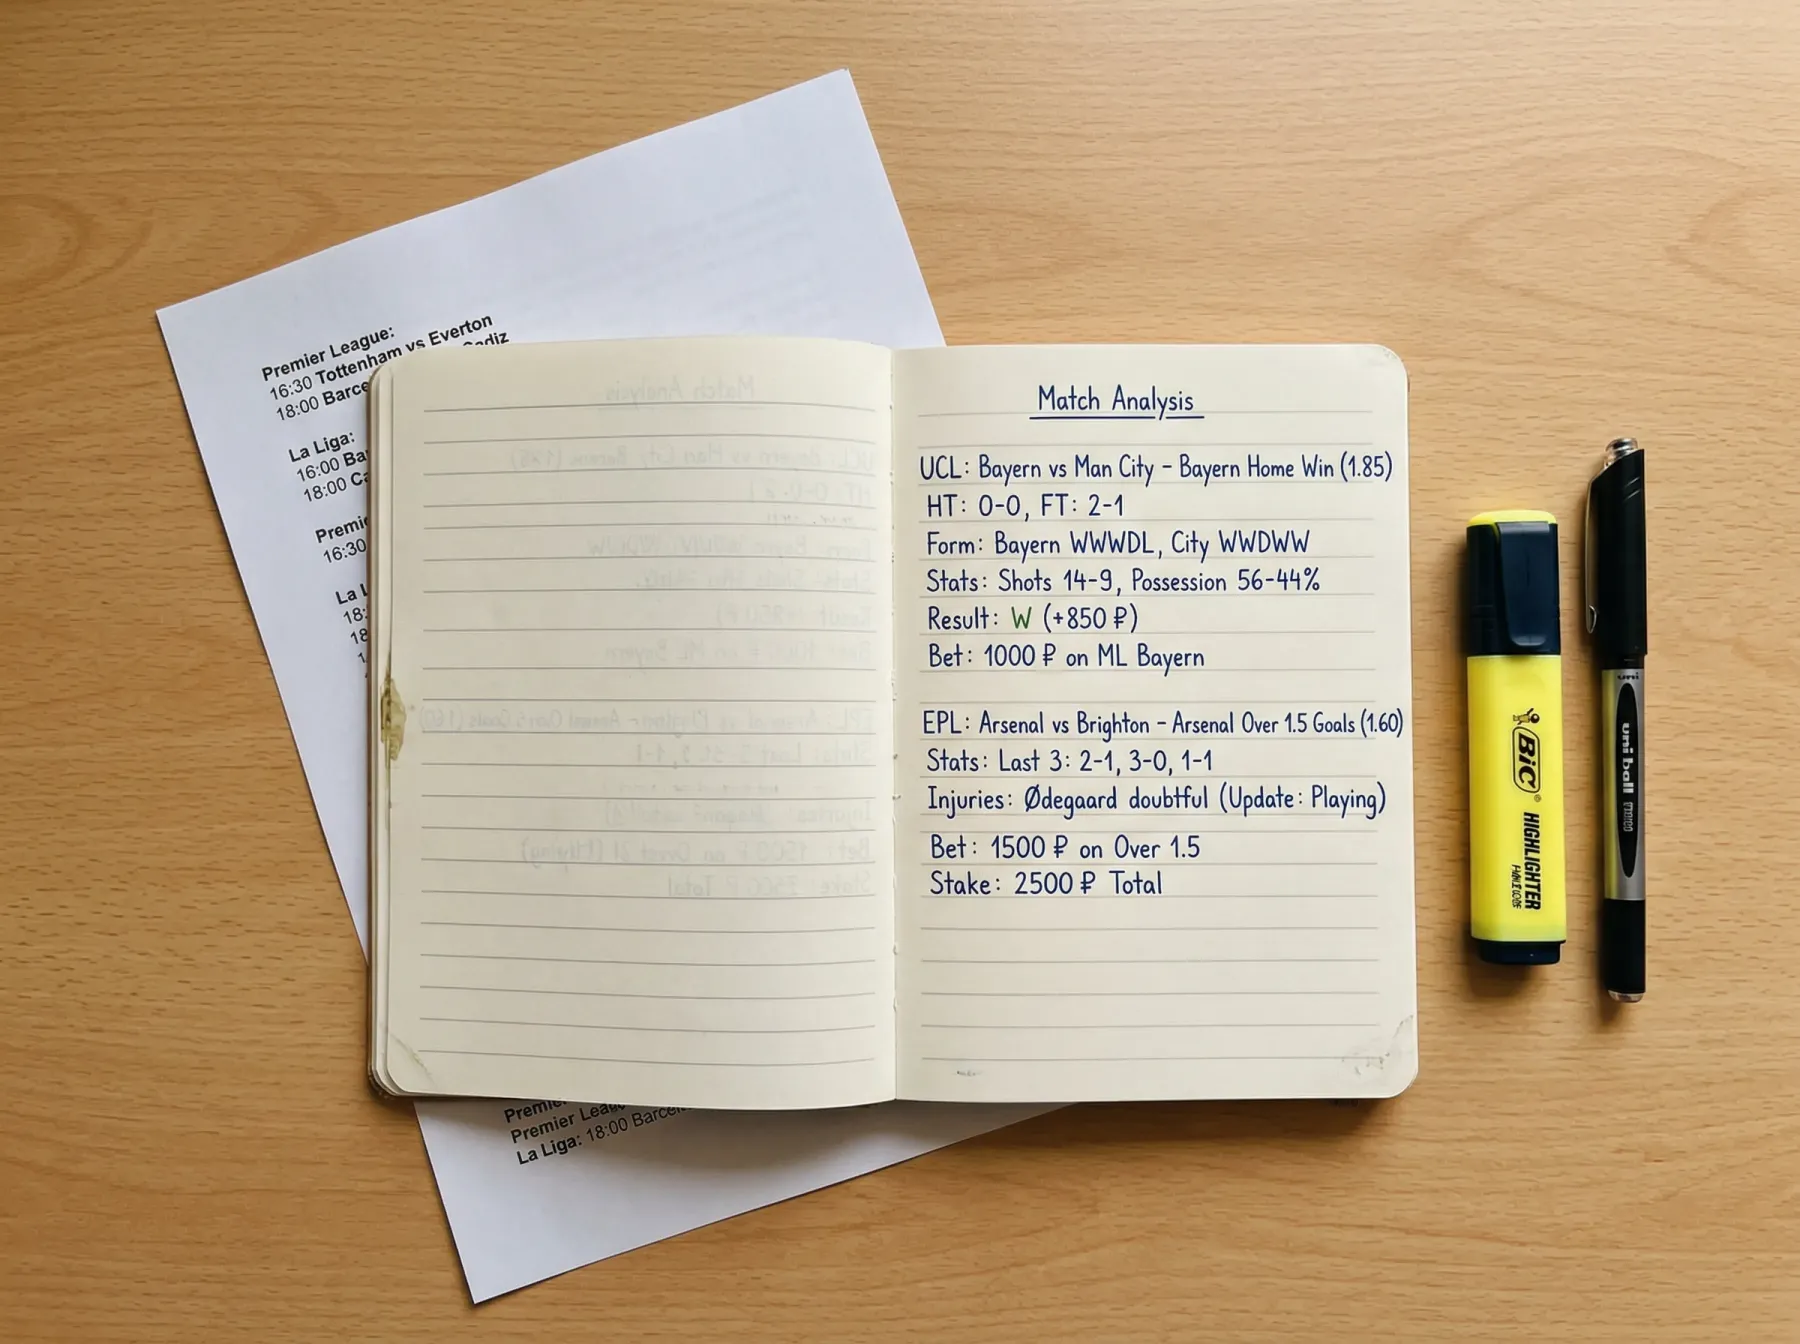 Premier League:
16:30 Tottenham vs Everton
18:00 Barce
Cadiz
La Liga:
16:00 Ba
18:00 Ca
Premi
16:30
La L
18:
18
Match Analysis
UCL: Bayern vs Man City - Bayern Home Win (1.85)
HT: 0-0, FT: 2-1
Form: Bayern WWWDL, City WWDWW
Stats: Shots 14-9, Possession 56-44%
Result: W (+850 ₽)
Bet: 1000 ₽ on ML Bayern
EPL: Arsenal vs Brighton - Arsenal Over 1.5 Goals (1.60)
Stats: Last 3: 2-1, 3-0, 1-1
Injuries: Ødegaard doubtful (Update: Playing)
Bet: 1500 ₽ on Over 1.5
Stake: 2500 ₽ Total
Premie
Premier Leag
La Liga: 18:00 Barcel
BIC
HIGHLIGHTER
uni
uni ball